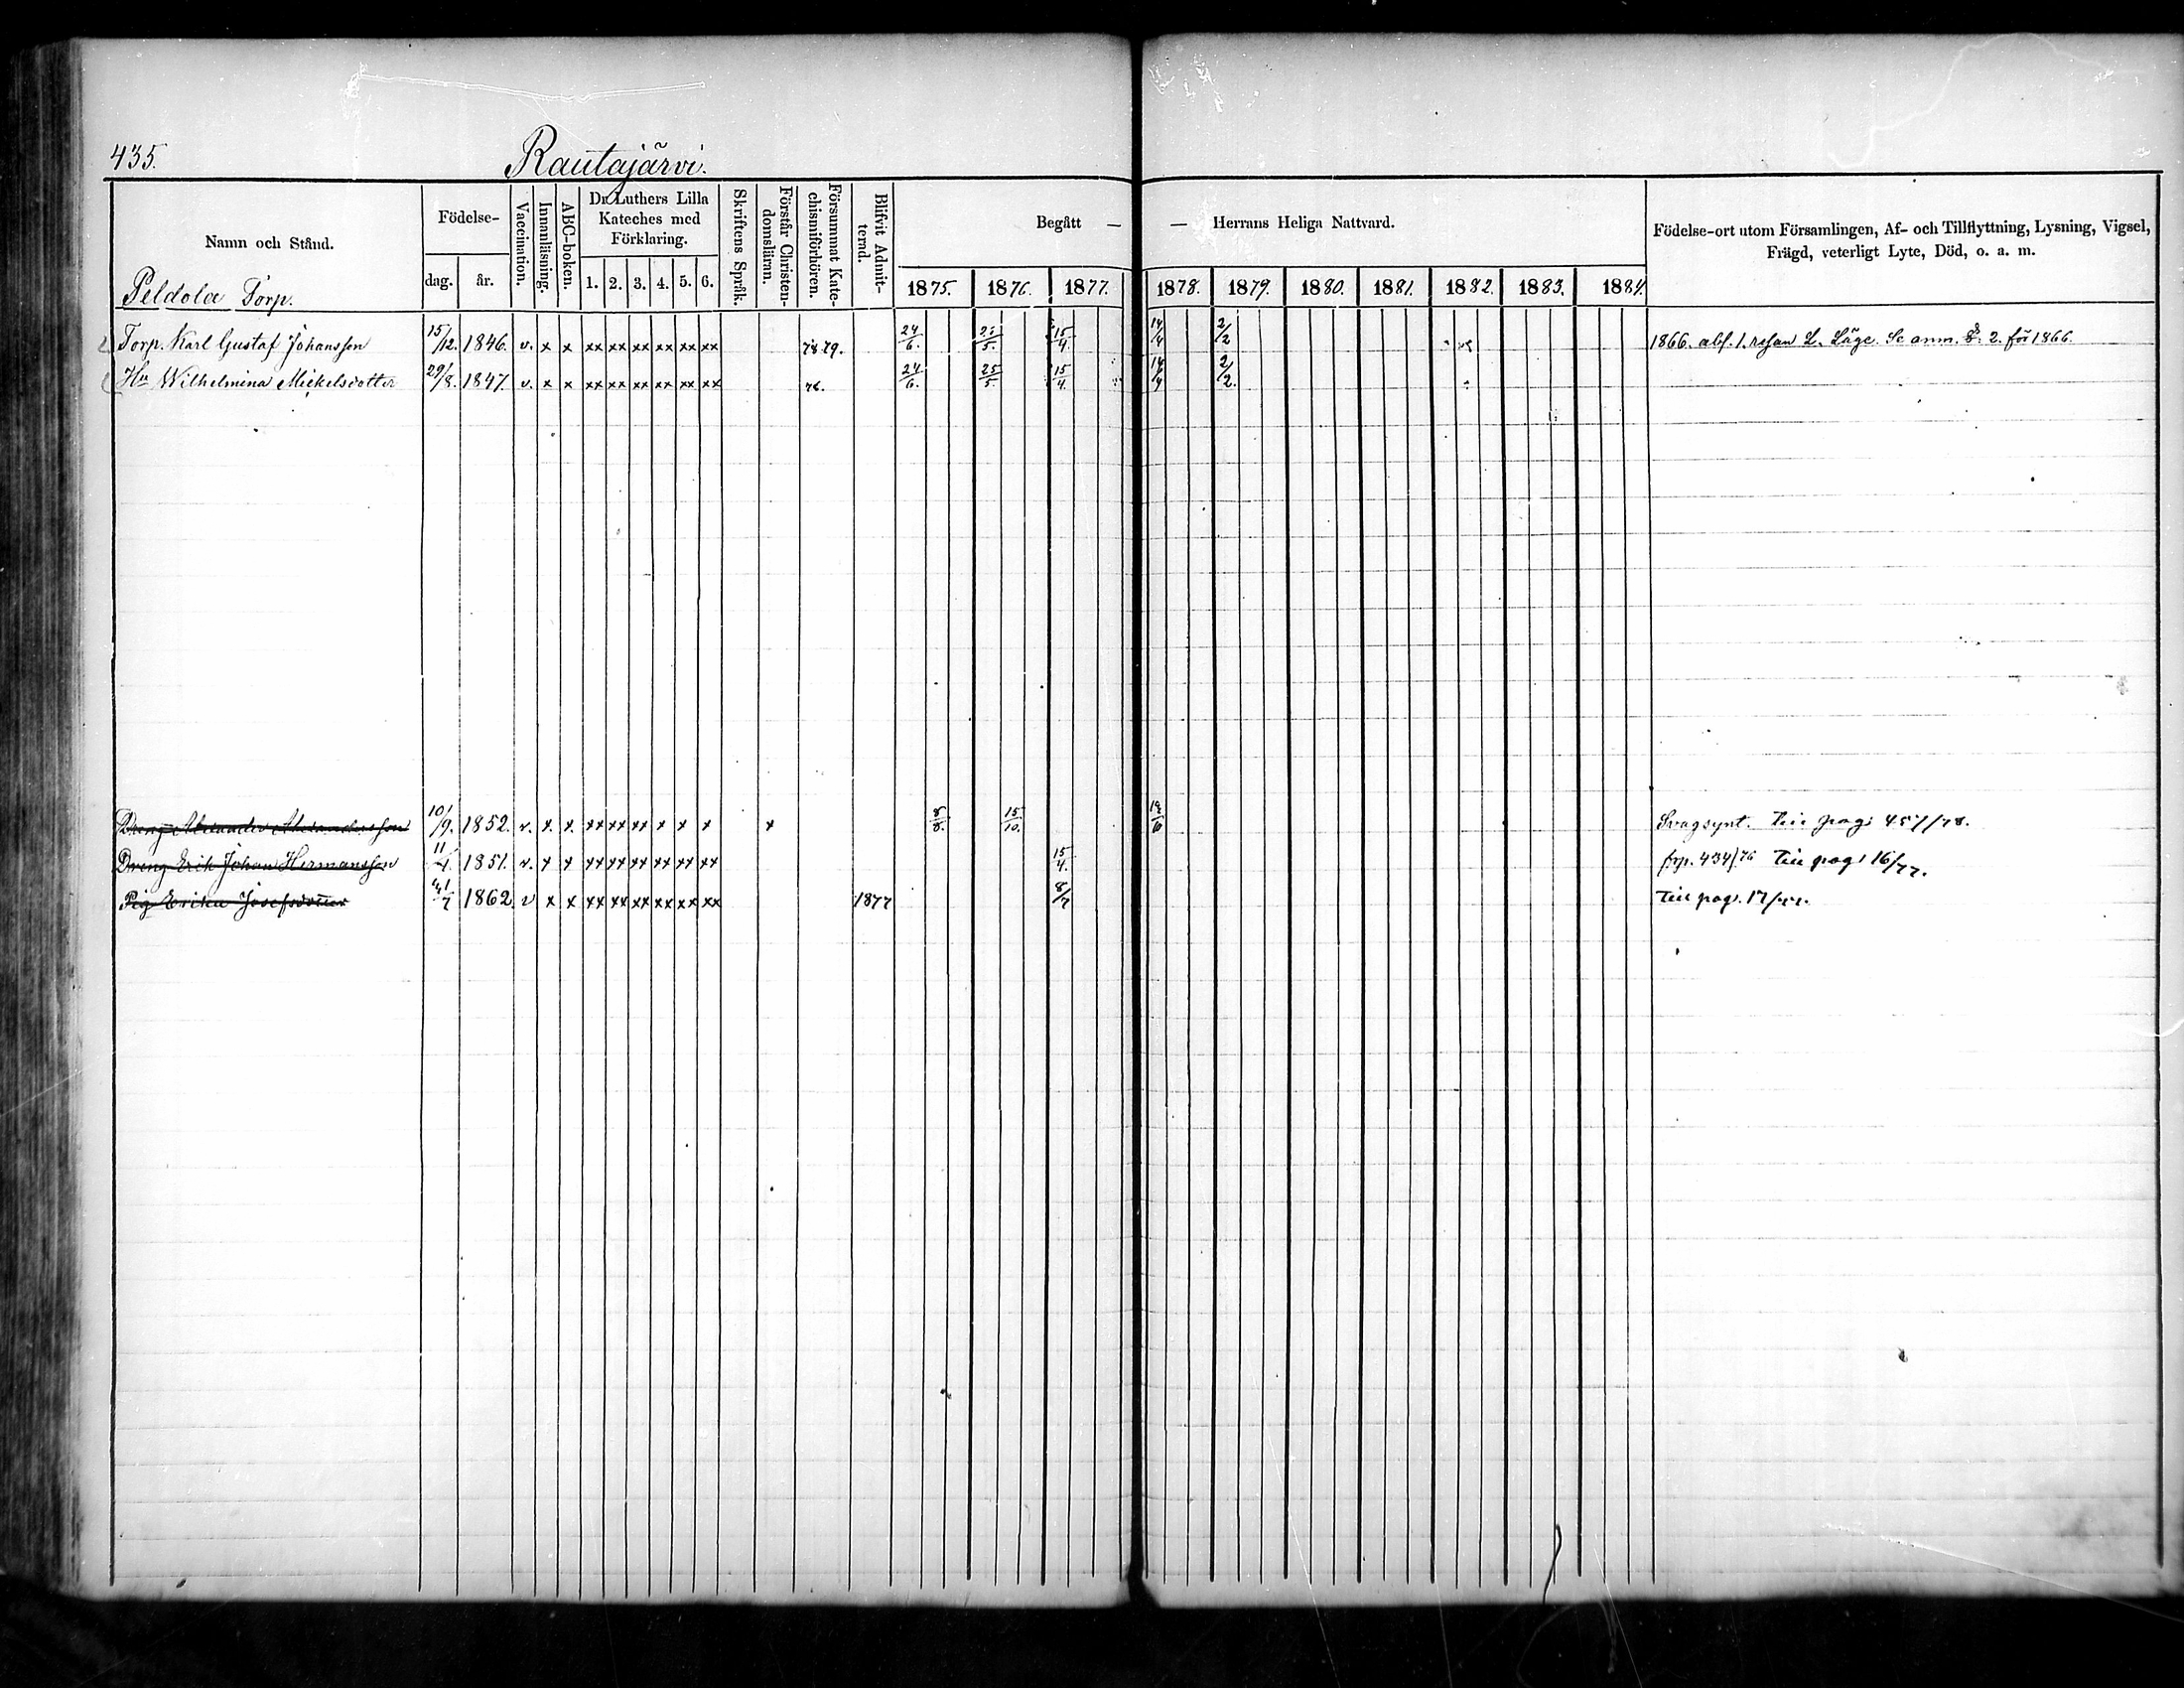 435.
Rautajärvi.
Namn och Stånd.
Födelse-
dag. år.
Vaccination.
Innanläsning.
ABC-boken.
Dr Luthers Lilla
Kateches med
Förklaring.
1. 2. 3. 4. 5. 6.
Skriftens Språk.
Förstår Christen-
domsläran.
Försummat Kate-
chismiförhören.
Blifvit Admit-
terad.
Begått — — Herrans Heliga Nattvard.
1875. 1876. 1877. 1878. 1879. 1880. 1881. 1882. 1883. 1884.
Födelse-ort utom Församlingen, Af- och Tillflyttning, Lysning, Vigsel,
Frägd, veterligt Lyte, Död, o. a. m.
Peldola Torp.
Torp. Karl Gustaf Johansson 15/12. 1846. v. x x xx xx xx xx xx xx 78 79. 24/6. 25/5. 15/4. 14/4 2/2 1866. 1. resan L. Se anm. 2. för 1866.
Hu Wilhelmina Mickelsdotter 29/8. 1847. v. x x xx xx xx xx xx xx 76. 24/6. 25/5. 15/4. 14/4 2/2.
Dreng Alexander Alexandersson 10/9. 1852. v. x. x. xx xx xx x x x x 8/8. 15/10. Svagsynt. Till pag: 457/78.
Dreng Erik Johan Hermansson 11/4. 1851. v. x x xx xx xx xx xx xx 15/4. frp. 434/76 Till pag: 16/77.
Pig Erika Josefsdotter 1862. v x x xx xx xx xx xx xx 1877 8/7 Till pag. 17/